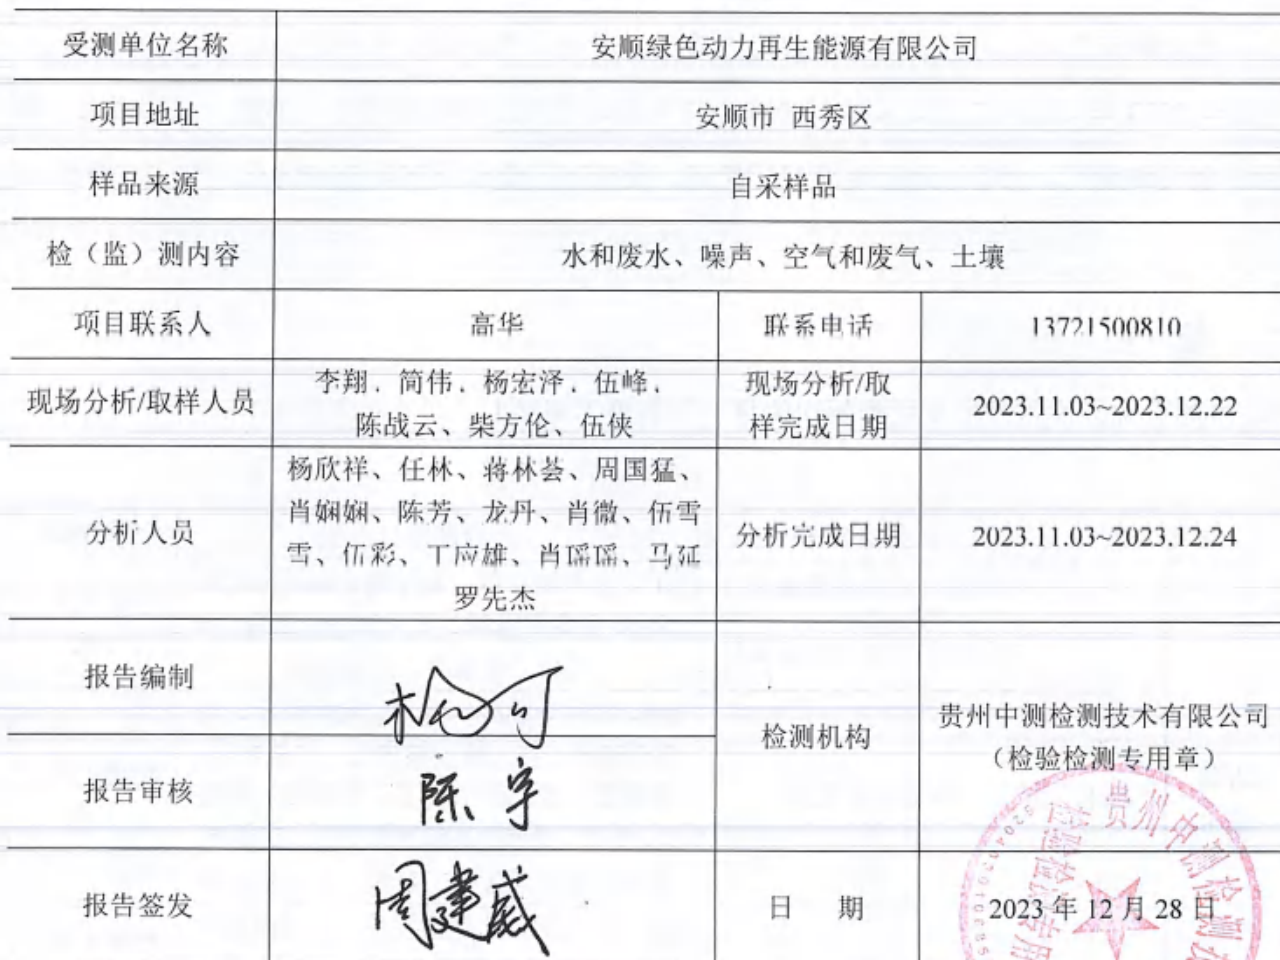 受测单位名称 安顺绿色动力再生能源有限公司
项目地址 安顺市 西秀区
样品来源 自采样品
检（监）测内容 水和废水、噪声、空气和废气、土壤
项目联系人 高华 联系电话 13721500810
现场分析/取样人员
李翔、简伟、杨宏泽、伍峰、
陈战云、柴方伦、伍侠
现场分析/取
样完成日期
2023.11.03~2023.12.22
分析人员
杨欣祥、任林、蒋林荟、周国猛、
肖娴娴、陈芳、龙丹、肖微、伍雪
雪、伍彩、丁应雄、肖瑶瑶、马延
罗先杰
分析完成日期
2023.11.03~2023.12.24
报告编制
报告审核 陈宇
检测机构
贵州中测检测技术有限公司
（检验检测专用章）
报告签发 周建威
日 期 2023 年 12 月 28 日
贵州中测检测技
检验检测专用